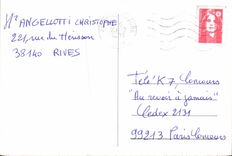 Mr ANGELLOTTI CHRISTOPHE
221, rue du Hérisson
38140 RIVES
Télé K7, Concours
"Au revoir à jamais"
Cedex 2131
99213 Paris Concours